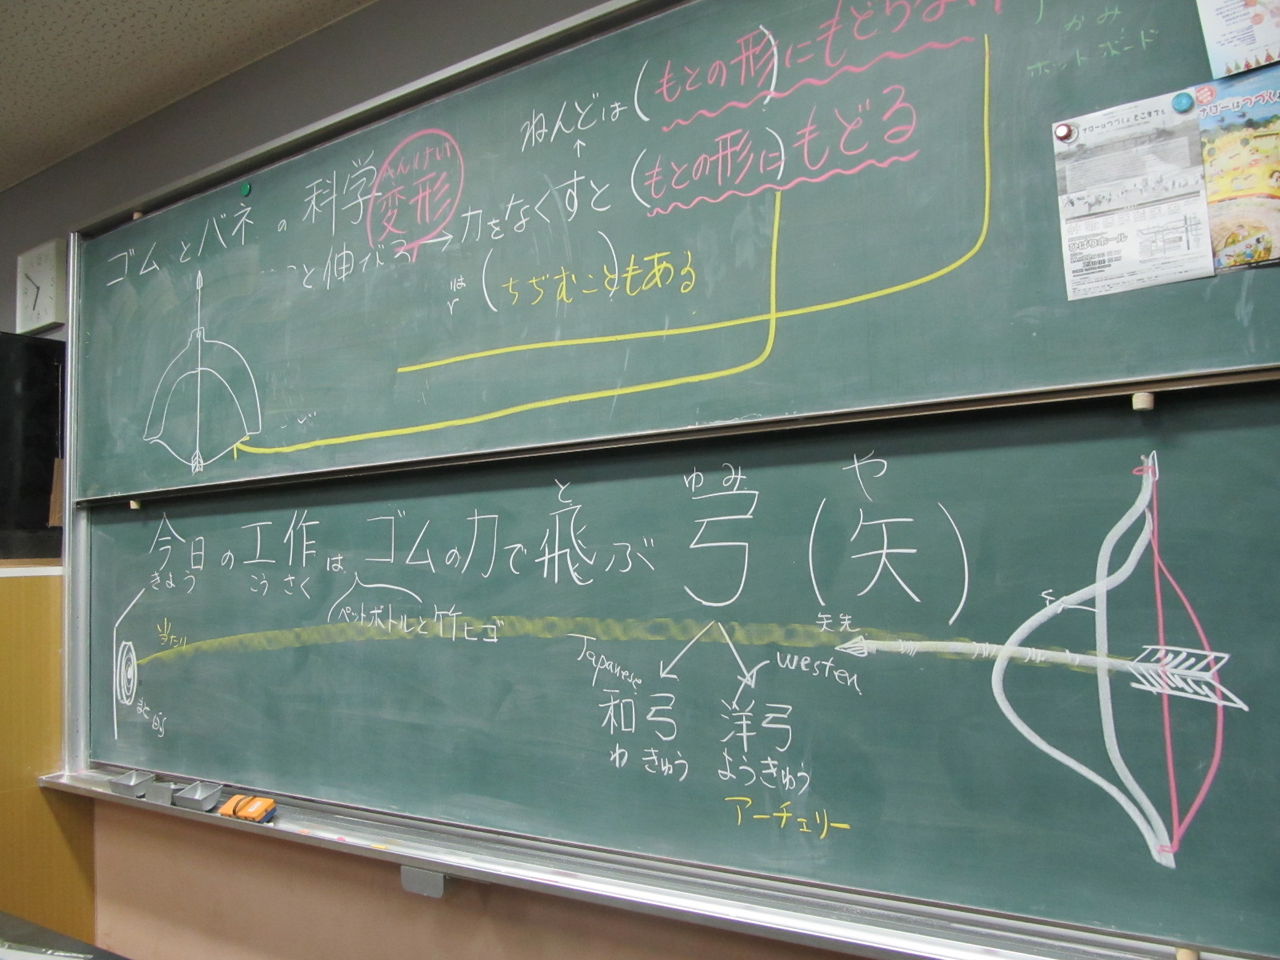 がみ
ホットボード
ねんどは(もとの形)にもどらない
へんけい
ゴムとバネの科学 変形
と伸びる→力をなくすと(もとの形に)もどる
は(ちぢむこと)もある
きょう こうさく と ゆみ や
今日の工作はゴムの力で飛ぶ弓(矢)
ペットボトルと竹ヒゴ
当たり
矢先
まと
Japanese
westen
和弓 洋弓
わきゅう ようきゅう
アーチェリー
ひばりホール